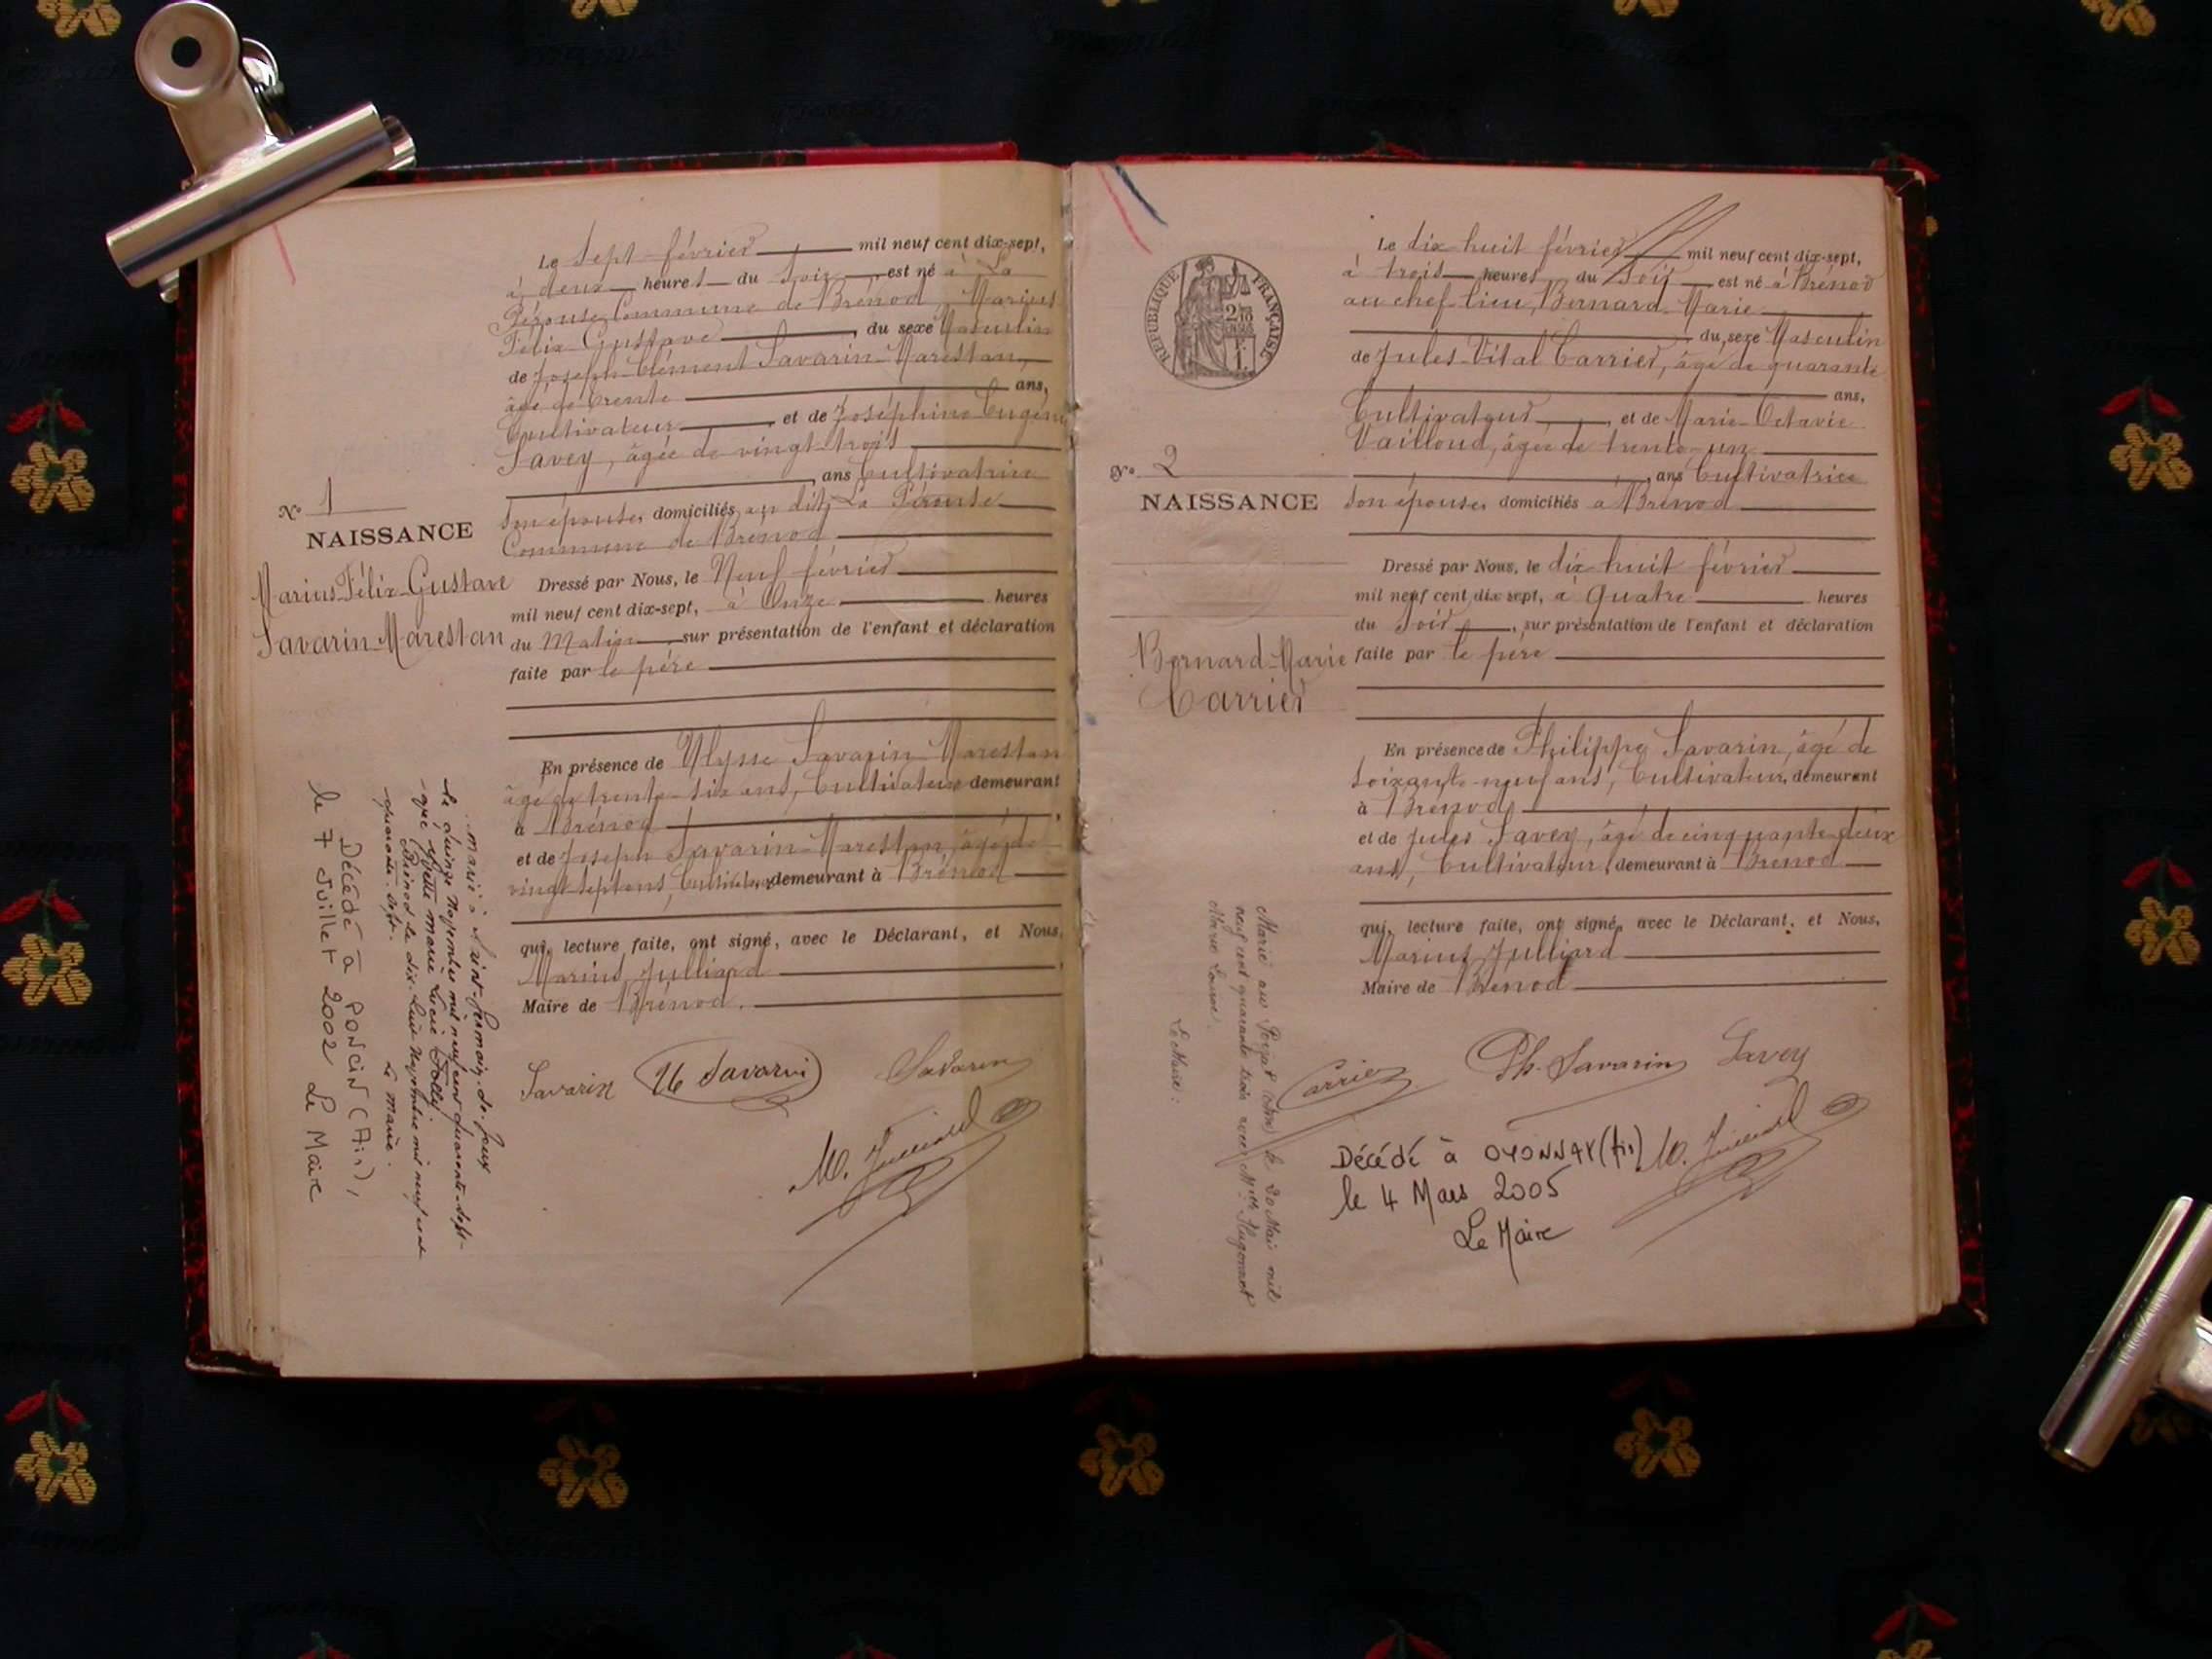 Le Sept février mil neuf cent dix-sept,
à deux heures du Soir, est né à La
Pérouse, Commune de Brénod, Marius
Félix Gustave, du sexe Masculin
de Joseph-Clément Savarin-Marestan,
âgé de trente ans,
Cultivateur, et de Joséphine Eugénie
Savey, âgée de vingt-trois
ans Cultivatrice
son épouse, domiciliés au dit, La Pérouse
Commune de Brénod
No 1
NAISSANCE
Marius-Félix-Gustave
Savarin-Marestan
Dressé par Nous, le Neuf février
mil neuf cent dix-sept, à Onze heures
du Matin, sur présentation de l'enfant et déclaration
faite par le père
En présence de Ulysse Savarin-Marestan
âgé de trente-six ans, Cultivateur demeurant
à Brénod
et de Joseph Savarin-Marestan, âgé de
vingt sept ans, Cultivateur, demeurant à Brénod
qui, lecture faite, ont signé, avec le Déclarant, et Nous,
Marius Julliard
Maire de Brénod.
Savarin U Savarin Savarin
M. Julliard
marié à Saint-Germain-de-Joux
le quinze Novembre mil neuf cent quarante-sept
Marie Lucie
Brénod le dix-huit Novembre mil neuf cent
quarante-sept.
Le Maire.
Décédé à PONCIN (Ain),
le 7 Juillet 2002 Le Maire
RÉPUBLIQUE FRANÇAISE
No 2
NAISSANCE
Bernard-Marie
Carrier
Le dix huit février mil neuf cent dix-sept,
à trois heures du Soir est né à Brénod
au chef-lieu, Bernard-Marie
du sexe Masculin
de Jules-Vital Carrier, âgé de quarante
ans,
Cultivateur, et de Marie-Octavie
Vailloud, âgée de trente-un
ans Cultivatrice
son épouse, domiciliés à Brénod
Dressé par Nous, le dix huit février
mil neuf cent dix sept, à Quatre heures
du Soir, sur présentation de l'enfant et déclaration
faite par le père
En présence de Philippe Savarin, âgé de
soixante-neuf ans, Cultivateur, demeurant
à Brénod
et de Jules Savey, âgé de cinquante-deux
ans, Cultivateur, demeurant à Brénod
qui, lecture faite, ont signé, avec le Déclarant, et Nous,
Marius Julliard
Maire de Brénod
Carrier Ph. Savarin Savey
M. Julliard
Marié au Poizat (Ain) le 20 Mai mil
neuf cent quarante trois avec Melle Hugonnet
Marie Louise.
Le Maire:
Décédé à OYONNAX (Ain)
le 4 Mars 2005
Le Maire